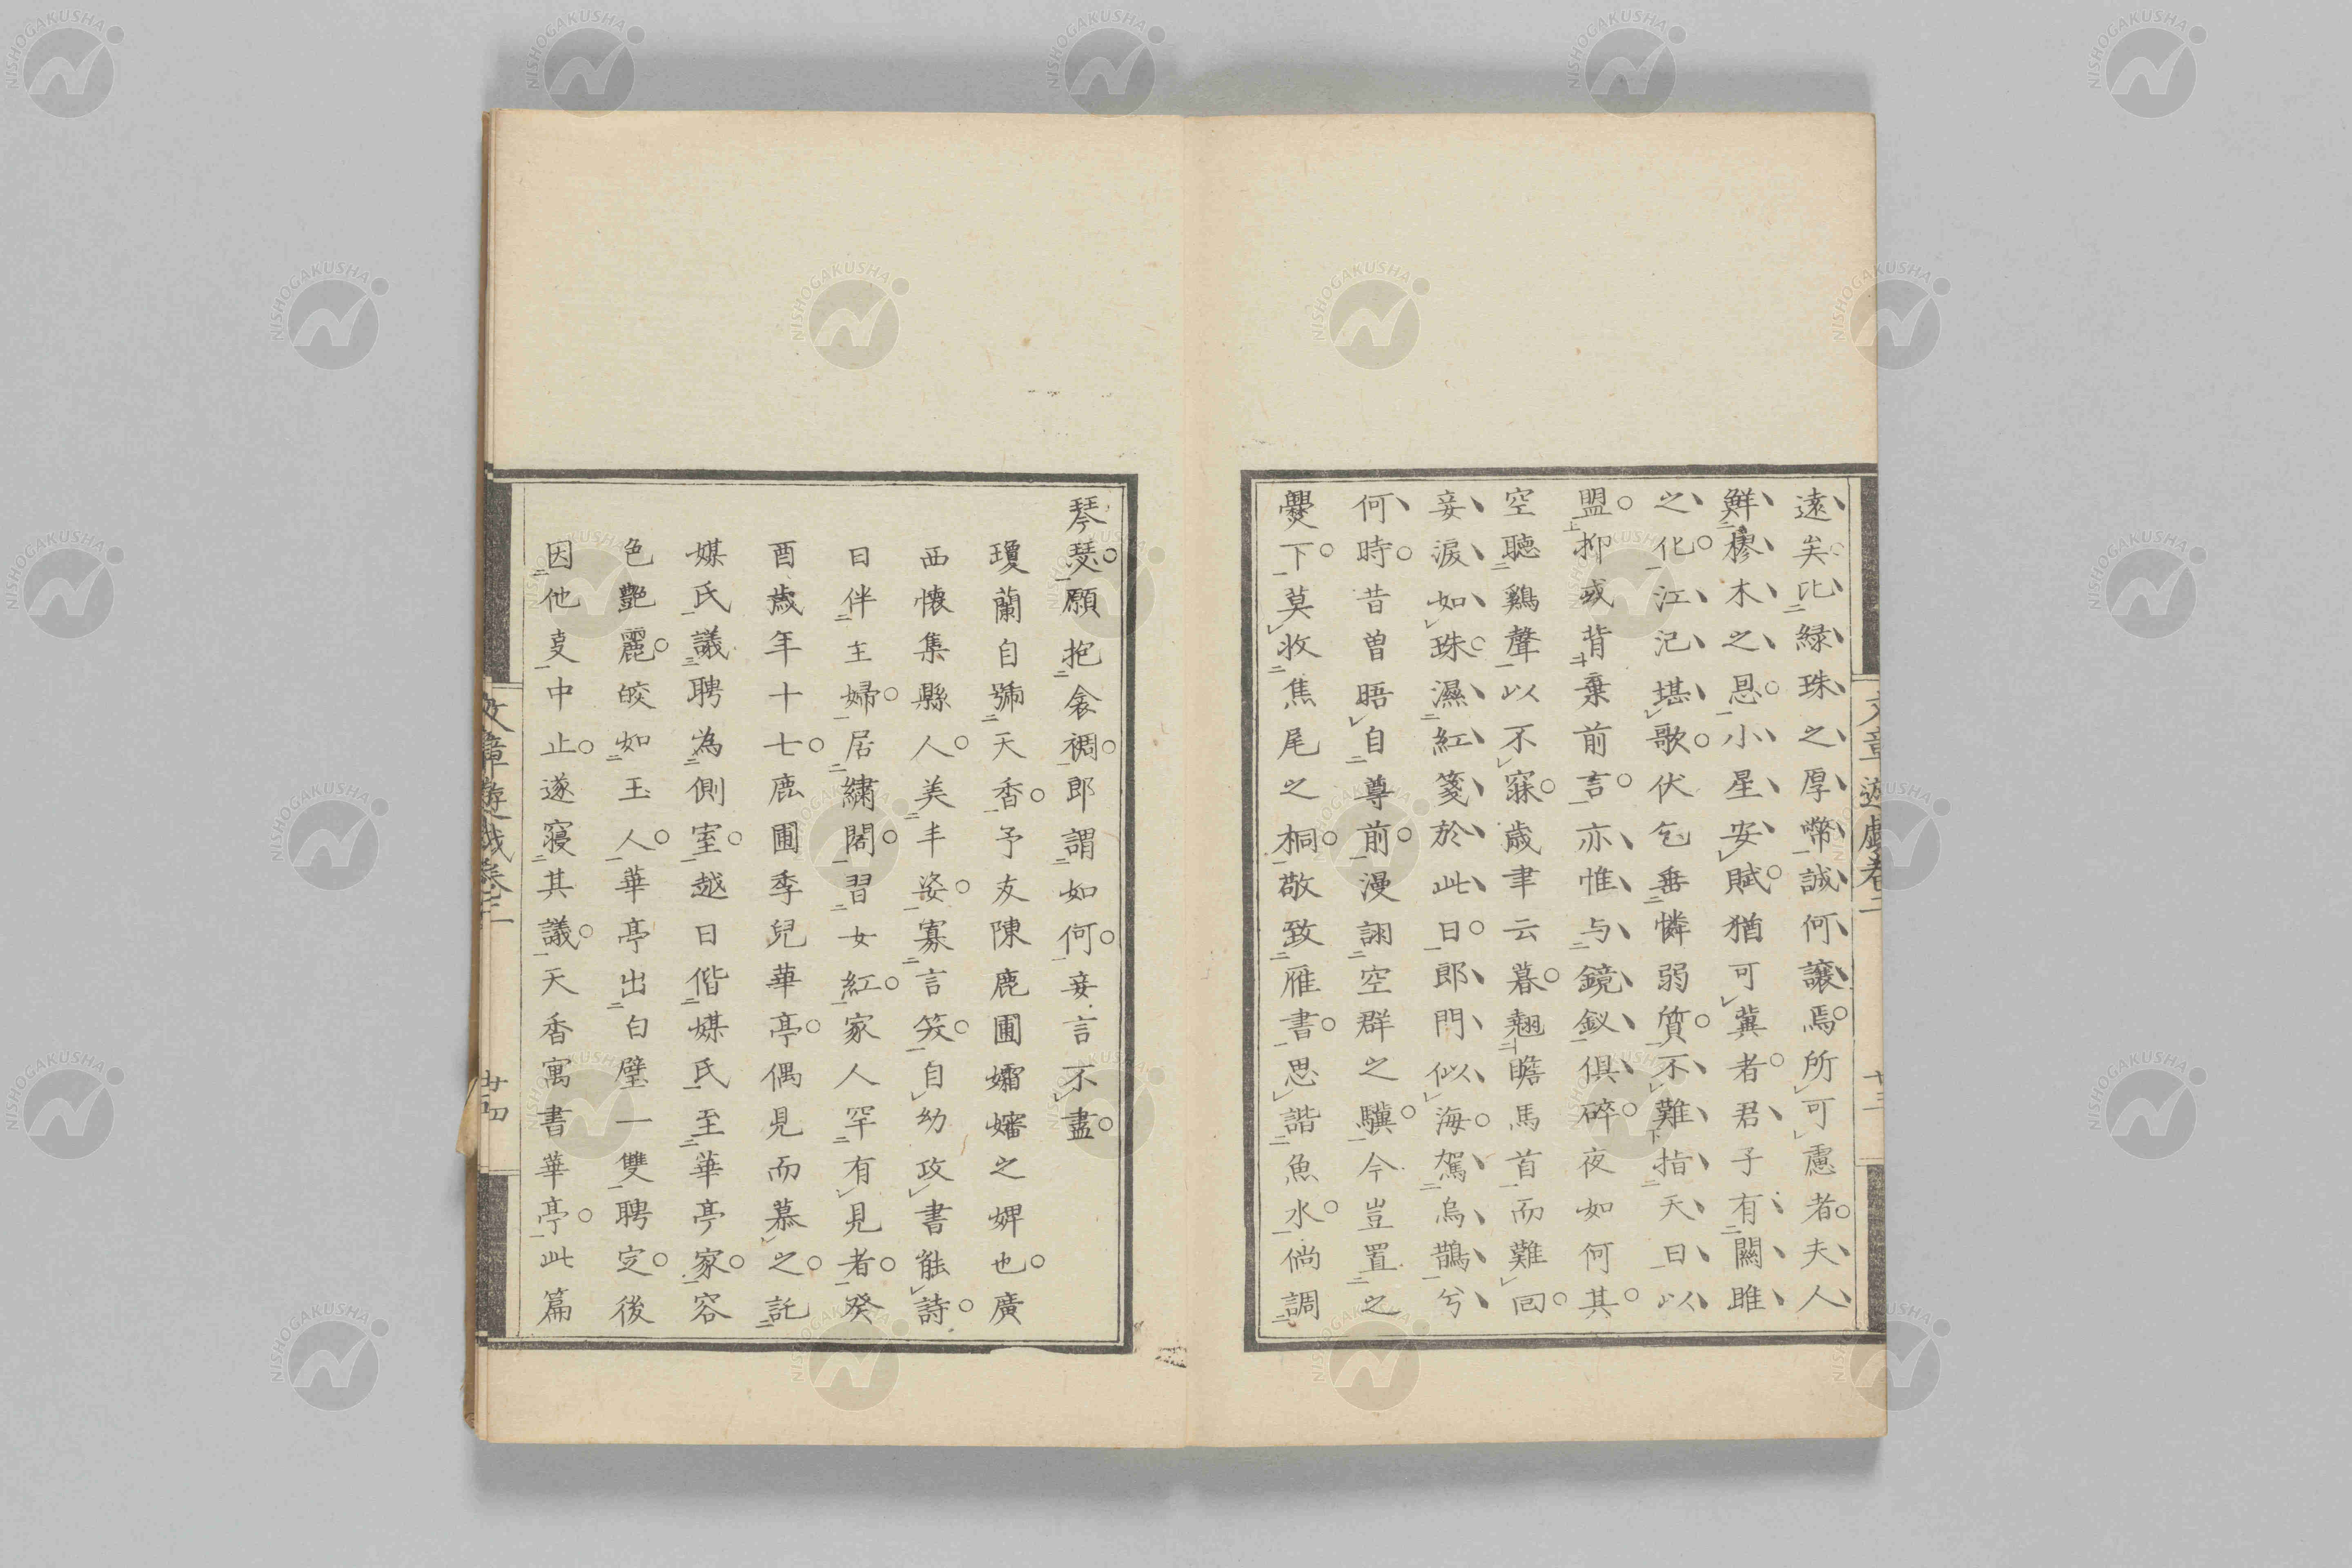 遠矣比緑珠之厚幣誠何讓焉所可慮者夫人
鮮樛木之恩小星安賦猶可冀者君子有關雎
之化江汜堪歌伏乞垂憐弱質不難指天日以
盟抑或背棄前言亦惟与鏡釵俱碎夜如何其
空聽鷄聲以不寐歳聿云暮翹瞻馬首而難回
妾淚如珠濕紅箋於此日郎門似海駕烏鵲兮
何時昔曽晤自尊前漫詡空群之驥今豈置之
爨下莫收焦尾之桐敬致雁書思諧魚水倘調
琴瑟願抱衾裯郎謂如何妾言不盡
瓊蘭自號天香予友陳鹿圃孀嬸之婢也廣
西懷集縣人美丰姿寡言笑自幼攻書能詩
日伴主婦居繡閣習女紅家人罕有見者癸
酉歳年十七鹿圃季兒華亭偶見而慕之託
媒氏議聘為側室越日偕媒氏至華亭家容
色艷麗皎如玉人華亭出白璧一雙聘定後
因他叓中止遂寢其議天香寓書華亭此篇
文章遊戯卷二
廿三
文章遊戯卷二
廿四
NISHOGAKUSHA